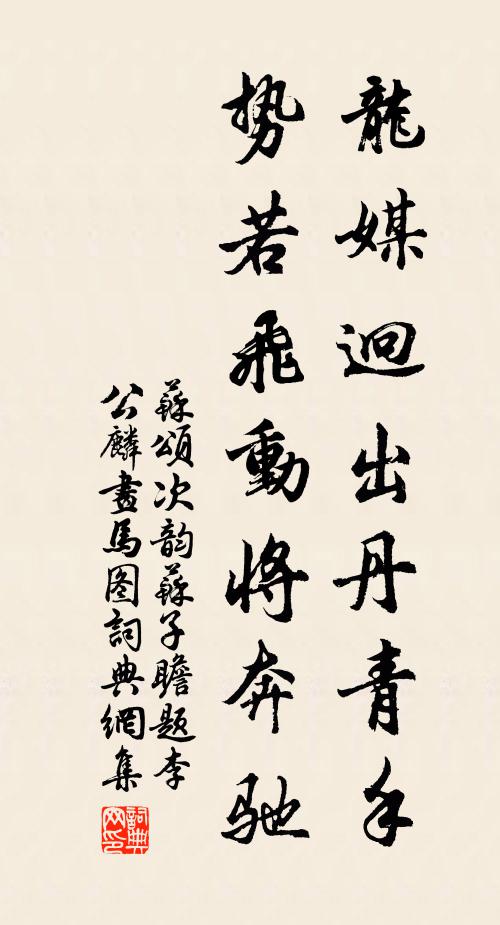 龍媒迥出丹青手
勢若飛動將奔馳
蘇頌次韵蘇子瞻題李
公麟畫馬图詞典網集
詞典
网印